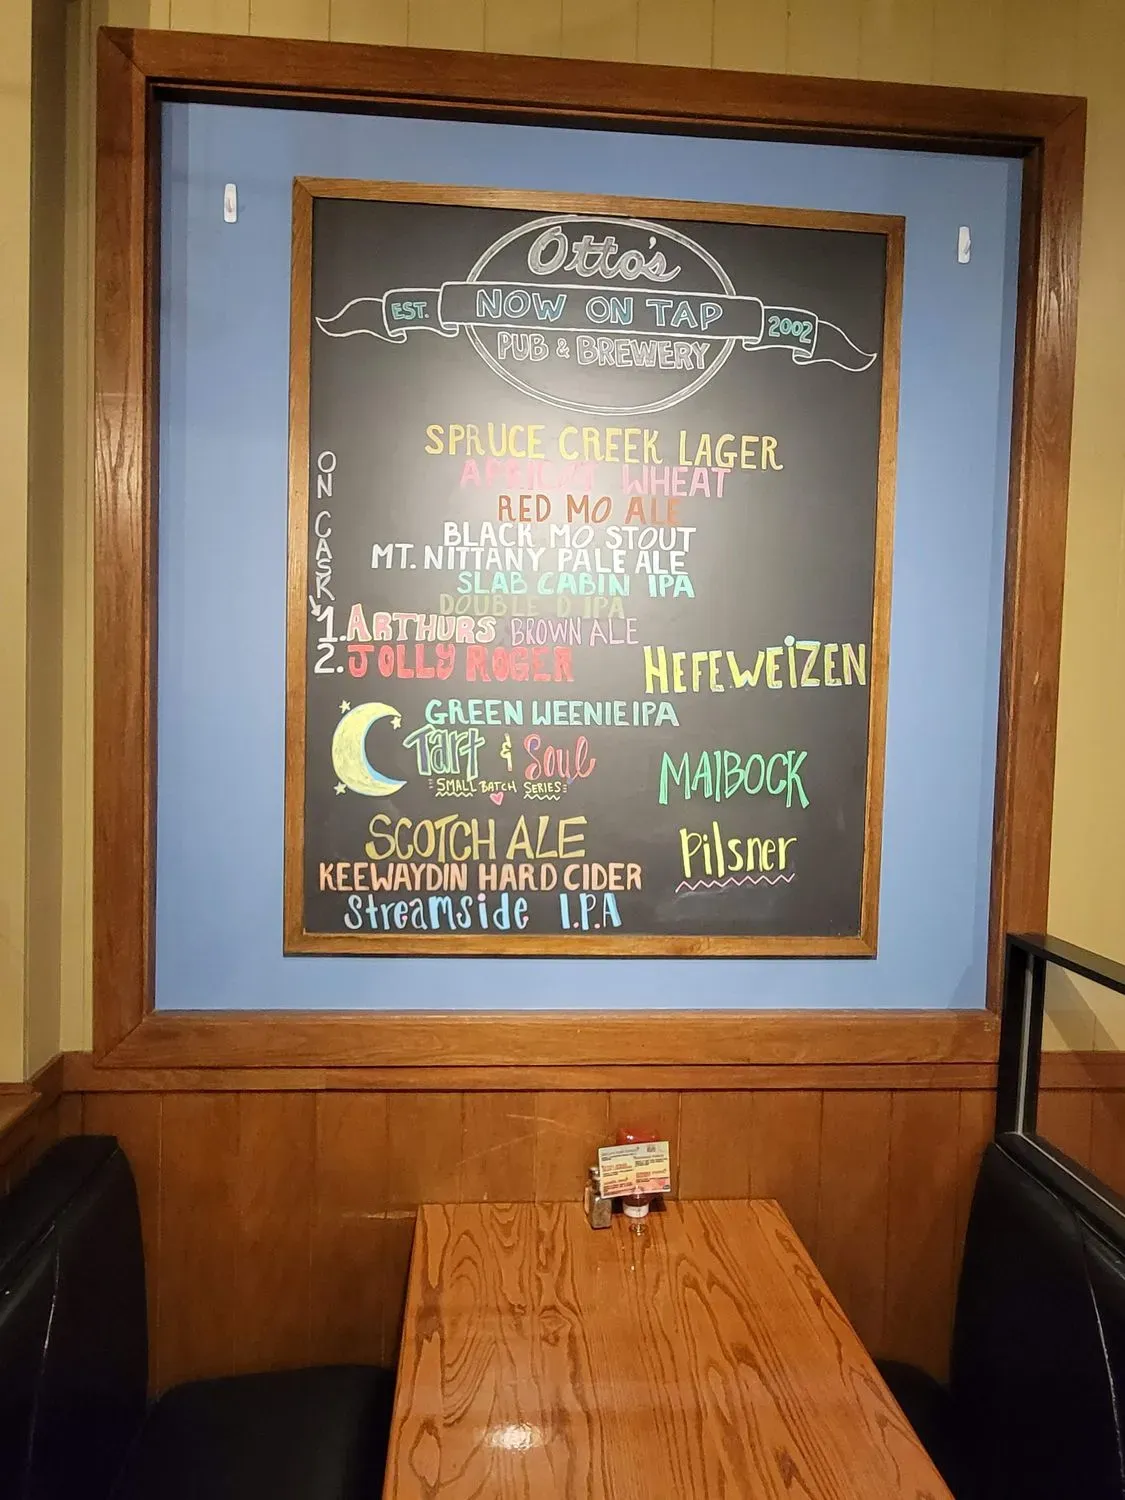 Otto's
EST. NOW ON TAP 2002
PUB & BREWERY
SPRUCE CREEK LAGER
APRICOT WHEAT
RED MO ALE
BLACK MO STOUT
MT. NITTANY PALE ALE
SLAB CABIN IPA
DOUBLE D IPA
ON CASK
1. ARTHURS BROWN ALE
2. JOLLY ROGER
HEFEWEIZEN
GREEN WEENIE IPA
Tart & Soul
SMALL BATCH SERIES
MAIBOCK
SCOTCH ALE
Pilsner
KEEWAYDIN HARD CIDER
Streamside I.P.A